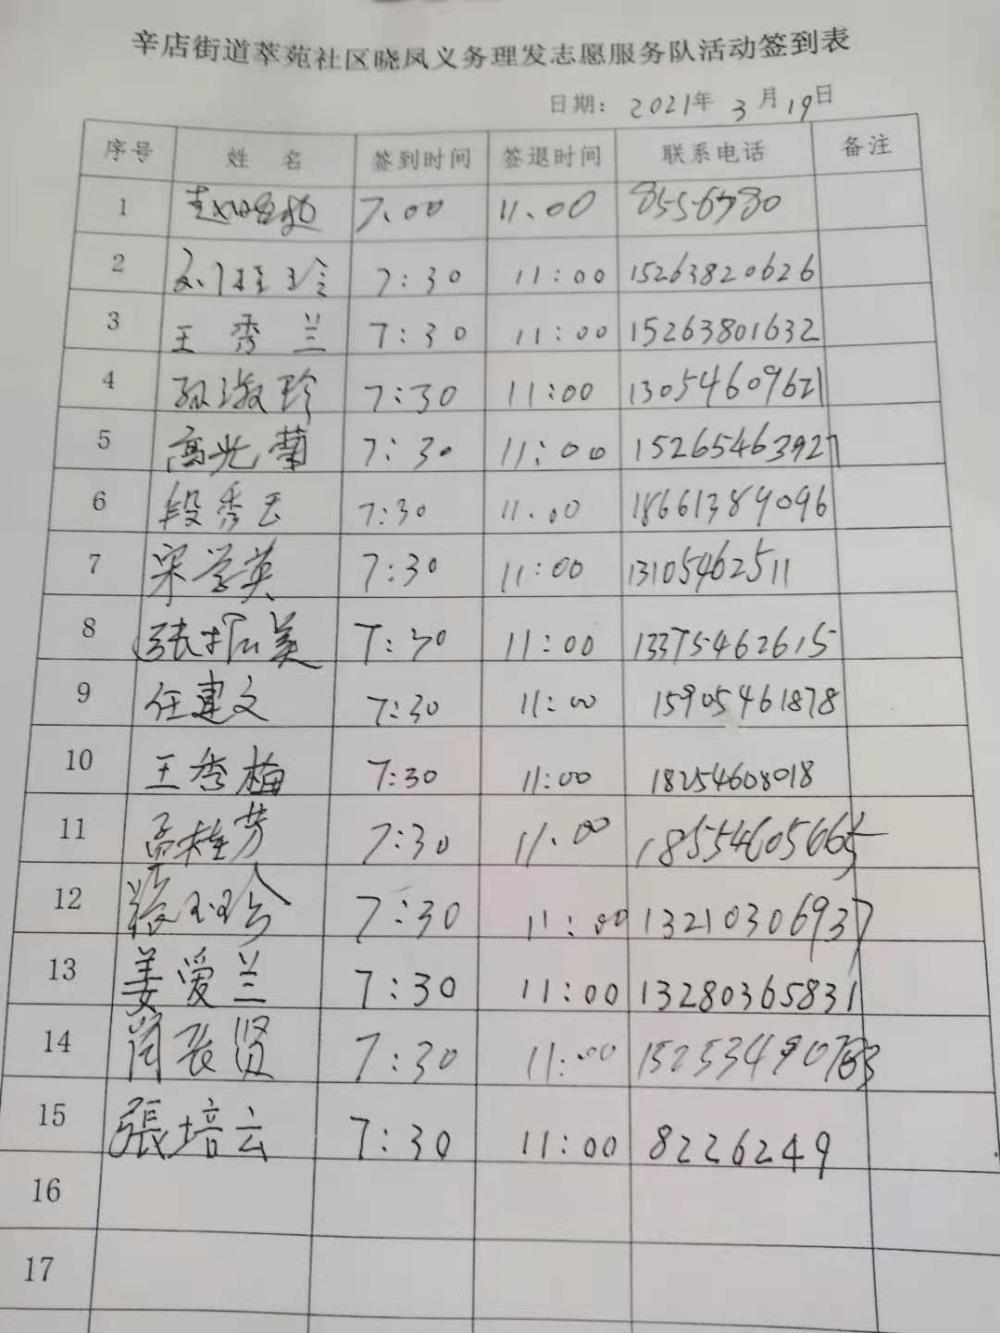 辛店街道萃苑社区晓凤义务理发志愿服务队活动签到表
日期： 2021年 3 月 19日
序号 姓 名 签到时间 签退时间 联系电话 备注
1 7.00 11.00 8556780
2 刘桂珍 7:30 11:00 15263820626
3 王秀兰 7:30 11:00 15263801632
4 孙淑珍 7:30 11:00 13054609621
5 高光菊 7:30 11:00 15265463927
6 段秀玉 7:30 11.00 18661389096
7 宋学英 7:30 11:00 13105462511
8 张振美 7:30 11:00 13375462615
9 任建文 7:30 11:00 15905461878
10 王秀梅 7:30 11:00 18254608018
11 桂芳 7:30 11.00 18554605665
12 张玉珍 7:30 11:00 13210306937
13 姜爱兰 7:30 11:00 13280365831
14 贤 7:30 11:00
15 張培云 7:30 11:00 8226249
16
17